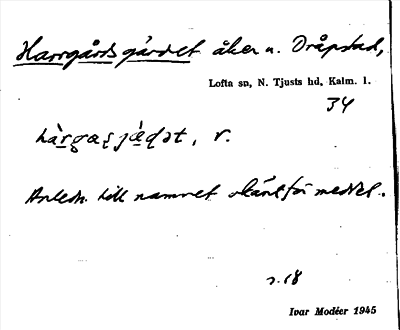 Harrgårds gärdet åker u. Dråpstad,
Lofta sn, N. Tjusts hd, Kalm. l.
34
Anledn. till namnet okänt för meddel.
s. 18
Ivar Modéer 1945